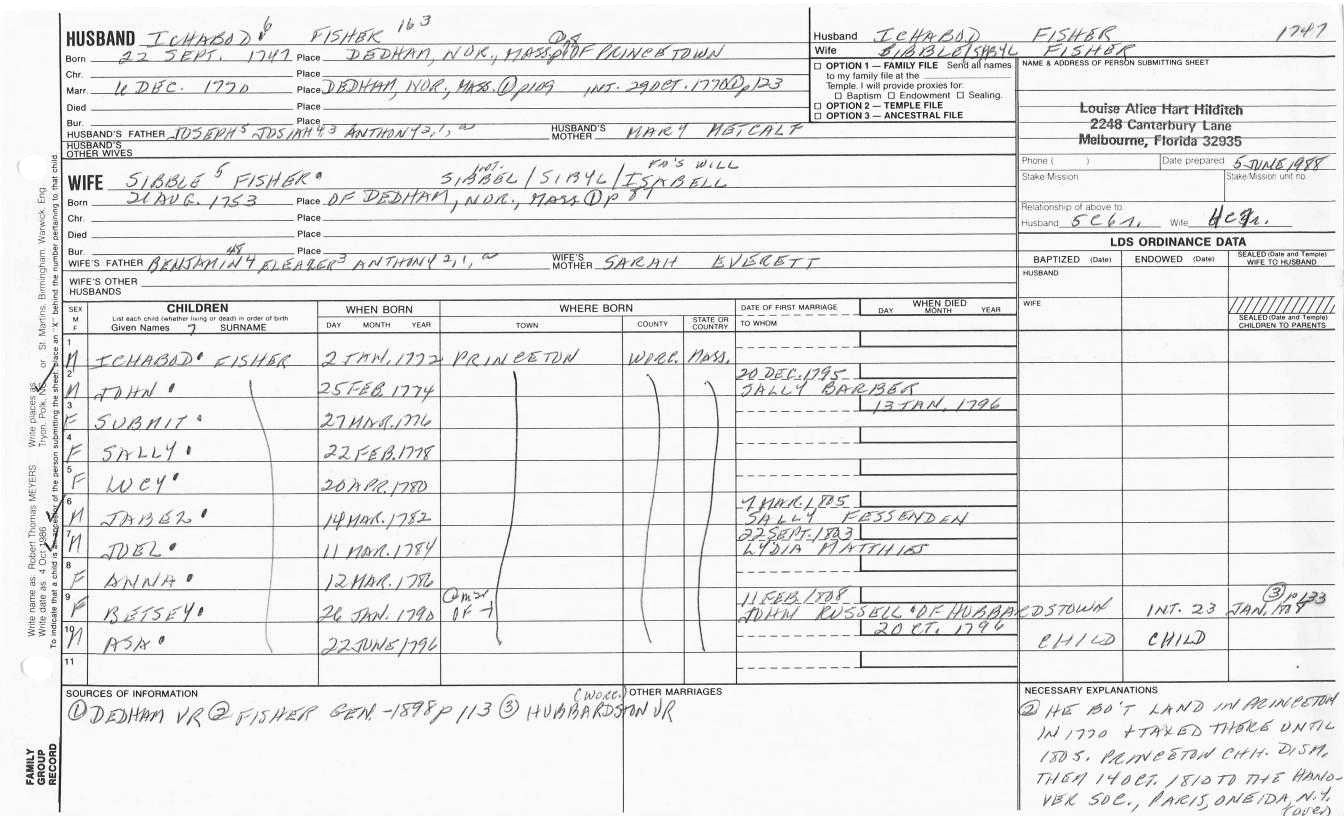 HUSBAND ICHABOD 6 FISHER 163
Born 22 SEPT. 1747 Place DEDHAM, NOR., MASS. OF PRINCETOWN
Chr. Place
Marr. 6 DEC. 1770 Place DEDHAM, NOR., MASS. ① p109 INT. 29 OCT. 1770 ① p123
Died Place
Bur. Place
HUSBAND'S FATHER JOSEPH 5 JOSIAH 4,3 ANTHONY 2,1, HUSBAND'S MOTHER MARY METCALF
HUSBAND'S OTHER WIVES
INT. FA'S WILL
WIFE SIBBLE 5 FISHER SIBBEL/SIBYL/ISABELL
Born 21 AUG. 1753 Place OF DEDHAM, NOR., MASS ① p 89
Chr. Place
Died Place
Bur. Place
WIFE'S FATHER BENJAMIN 4 ELEAZER 3 ANTHONY 2,1, WIFE'S MOTHER SARAH EVERETT
WIFE'S OTHER HUSBANDS
Husband ICHABOD FISHER 1747
Wife SIBBLE/SIBYL FISHER
☐ OPTION 1 — FAMILY FILE Send all names
to my family file at the
Temple. I will provide proxies for:
☐ Baptism ☐ Endowment ☐ Sealing.
☐ OPTION 2 — TEMPLE FILE
☐ OPTION 3 — ANCESTRAL FILE
NAME & ADDRESS OF PERSON SUBMITTING SHEET
Louise Alice Hart Hilditch
2248 Canterbury Lane
Melbourne, Florida 32935
Phone ( ) Date prepared 5 JUNE, 1988
Stake/Mission Stake/Mission unit no.
Relationship of above to:
Husband 5C6r. Wife
LDS ORDINANCE DATA
BAPTIZED (Date) ENDOWED (Date) SEALED (Date and Temple) WIFE TO HUSBAND
HUSBAND
WIFE
SEALED (Date and Temple) CHILDREN TO PARENTS
SEX M F CHILDREN WHEN BORN WHERE BORN DATE OF FIRST MARRIAGE WHEN DIED
List each child (whether living or dead) in order of birth DAY MONTH YEAR
Given Names 7 SURNAME DAY MONTH YEAR TOWN COUNTY STATE OR COUNTRY TO WHOM
1 M ICHABOD FISHER 2 JAN. 1772 PRINCETON WORC. MASS.
2 M JOHN 25 FEB. 1774 20 DEC. 1795 SALLY BARBER
3 F SUBMIT 27 MAR. 1776 13 JAN. 1796
4 F SALLY 22 FEB. 1778
5 F LUCY 20 APR. 1780
6 M JABEZ 14 MAR. 1782 7 MAR. 1805 SALLY FESSENDEN
7 M JOEL 11 MAR. 1784 22 SEPT. 1803 LYDIA MATTHIES
8 F ANNA 12 MAR. 1786
9 F BETSEY 26 JAN. 1790 OF 11 FEB 1808 JOHN RUSSELL OF HUBBARDSTOWN INT. 23 JAN. 1808 ③ p133
10 M ASA 22 JUNE 1796 20 OCT. 1796 CHILD CHILD
11
SOURCES OF INFORMATION
① DEDHAM VR ② FISHER GEN. - 1898 p 113 ③ HUBBARDSTON VR (WORC.)
OTHER MARRIAGES
NECESSARY EXPLANATIONS
② HE BO'T LAND IN PRINCETON
IN 1770 + TAXED THERE UNTIL
1805. PRINCETON CHH. DISM.
THEM 14 OCT. 1810 TO THE HANO-
VER SOC., PARIS, ONEIDA, N.Y.
(OVER)
Write name as: Robert Thomas MEYERS Write places as: Tryon, Polk, NC or St. Martins, Birmingham, Warwick, Eng.
Write date as: 4 Oct 1986
To indicate that a child is an ancestor of the person submitting the sheet, place an "X" behind the number pertaining to that child.
FAMILY GROUP RECORD